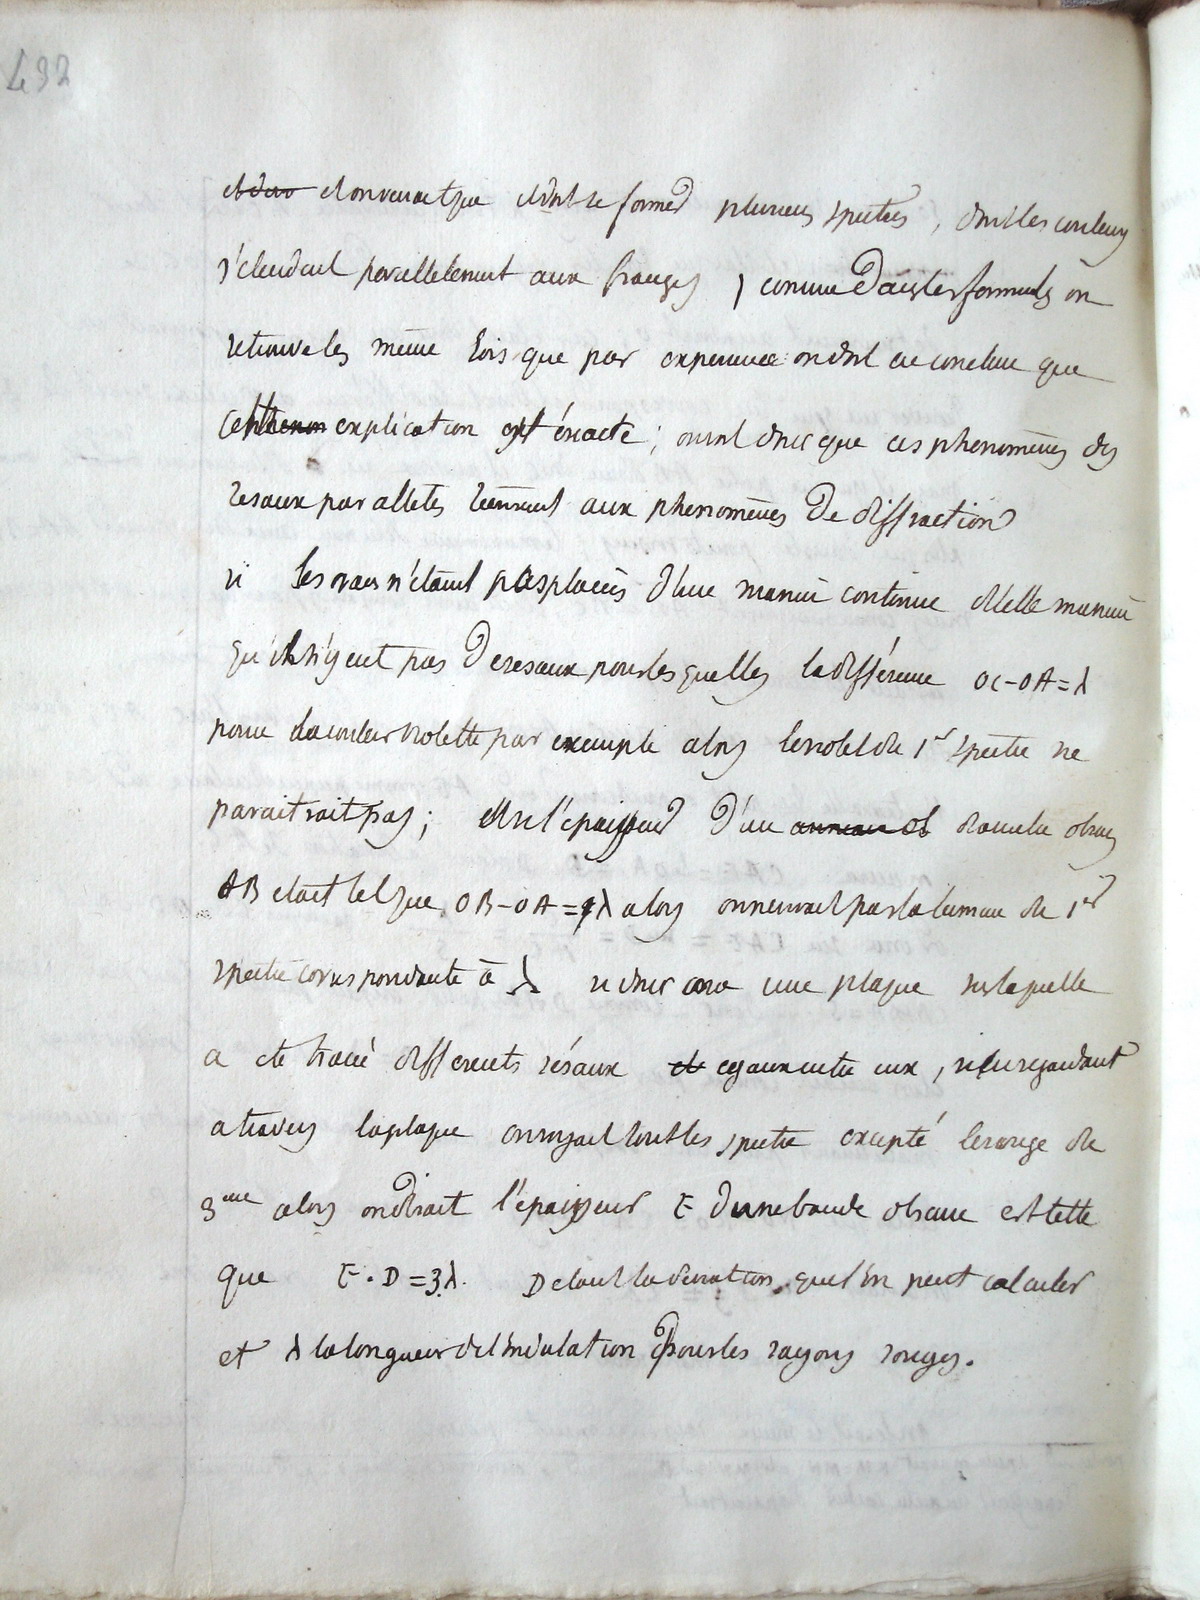 432
et donc et on verrait que doit se former plusieurs spectres, dont les couleurs
s'étendent parallelement aux franges, comme d'après les formules on
retrouve les même lois que par experience on doit en conclure que
cette explication est éxacte; on voit donc que ces phenomènes des
resaux paralleles tiennent aux phenomènes de diffraction
si les raies n'étaient pas placées d'une manière continue de telle manière
qu'il n'y eut pas de resaux pour lesquelles la différence OC-OA=λ
pour la couleur violette par exemple alors le violet du 1er spectre ne
paraitrait pas; et si l'épaisseur d'une bande obscure
AB etait tel que OB-OA=λ alors on ne verrait pas la lumiere du 1er
spectre correspondante à λ si donc on a une plaque sur laquelle
a ete tracé differents résaux egaux entre eux, si en regardant
a travers la plaque on voyait tout les spectre excepté le rouge du
3eme alors on dirait l'épaisseur E d'une bande obscure est telle
que E.D=3λ. D etant la deviation que l'on peut calculer
et λ la longueur de l'ondulation pour les rayons rouges.